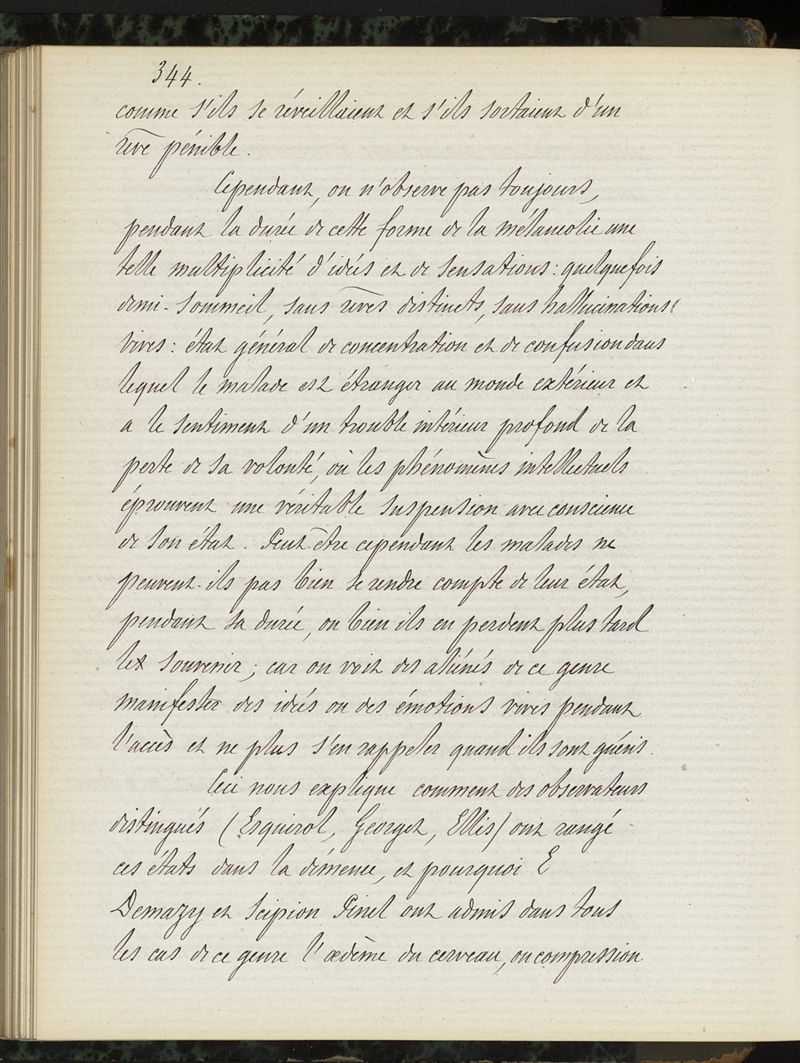 344.
comme s'ils se réveillaient et s'ils sortaient d'un
rêve pénible.
Cependant, on n'observe pas toujours,
pendant la durée de cette forme de la mélancolie une
telle multiplicité d'idées et de sensations: quelquefois
demi-sommeil, sans rêves distincts, sans hallucinations
vives: état général de concentration et de confusion dans
lequel le malade est étranger au monde extérieur et
a le sentiment d'un trouble intérieur profond de la
perte de sa volonté, où les phénomènes intellectuels
éprouvent une véritable suspension avec conscience
de son état. Peut être cependant les malades ne
peuvent-ils pas bien se rendre compte de leur état,
pendant sa durée, ou bien ils en perdent plus tard
le souvenir; car on voit des aliénés de ce genre
manifester des idées ou des émotions vives pendant
l'accès et ne plus s'en rappeler quand ils sont guéris.
Ceci nous explique comment des observateurs
distingués (Esquirol, Georget, Ellis) ont rangé
ces états dans la démence, et pourquoi E
Demazy et Scipion Pinel ont admis dans tous
les cas de ce genre l'œdème du cerveau, ou compression